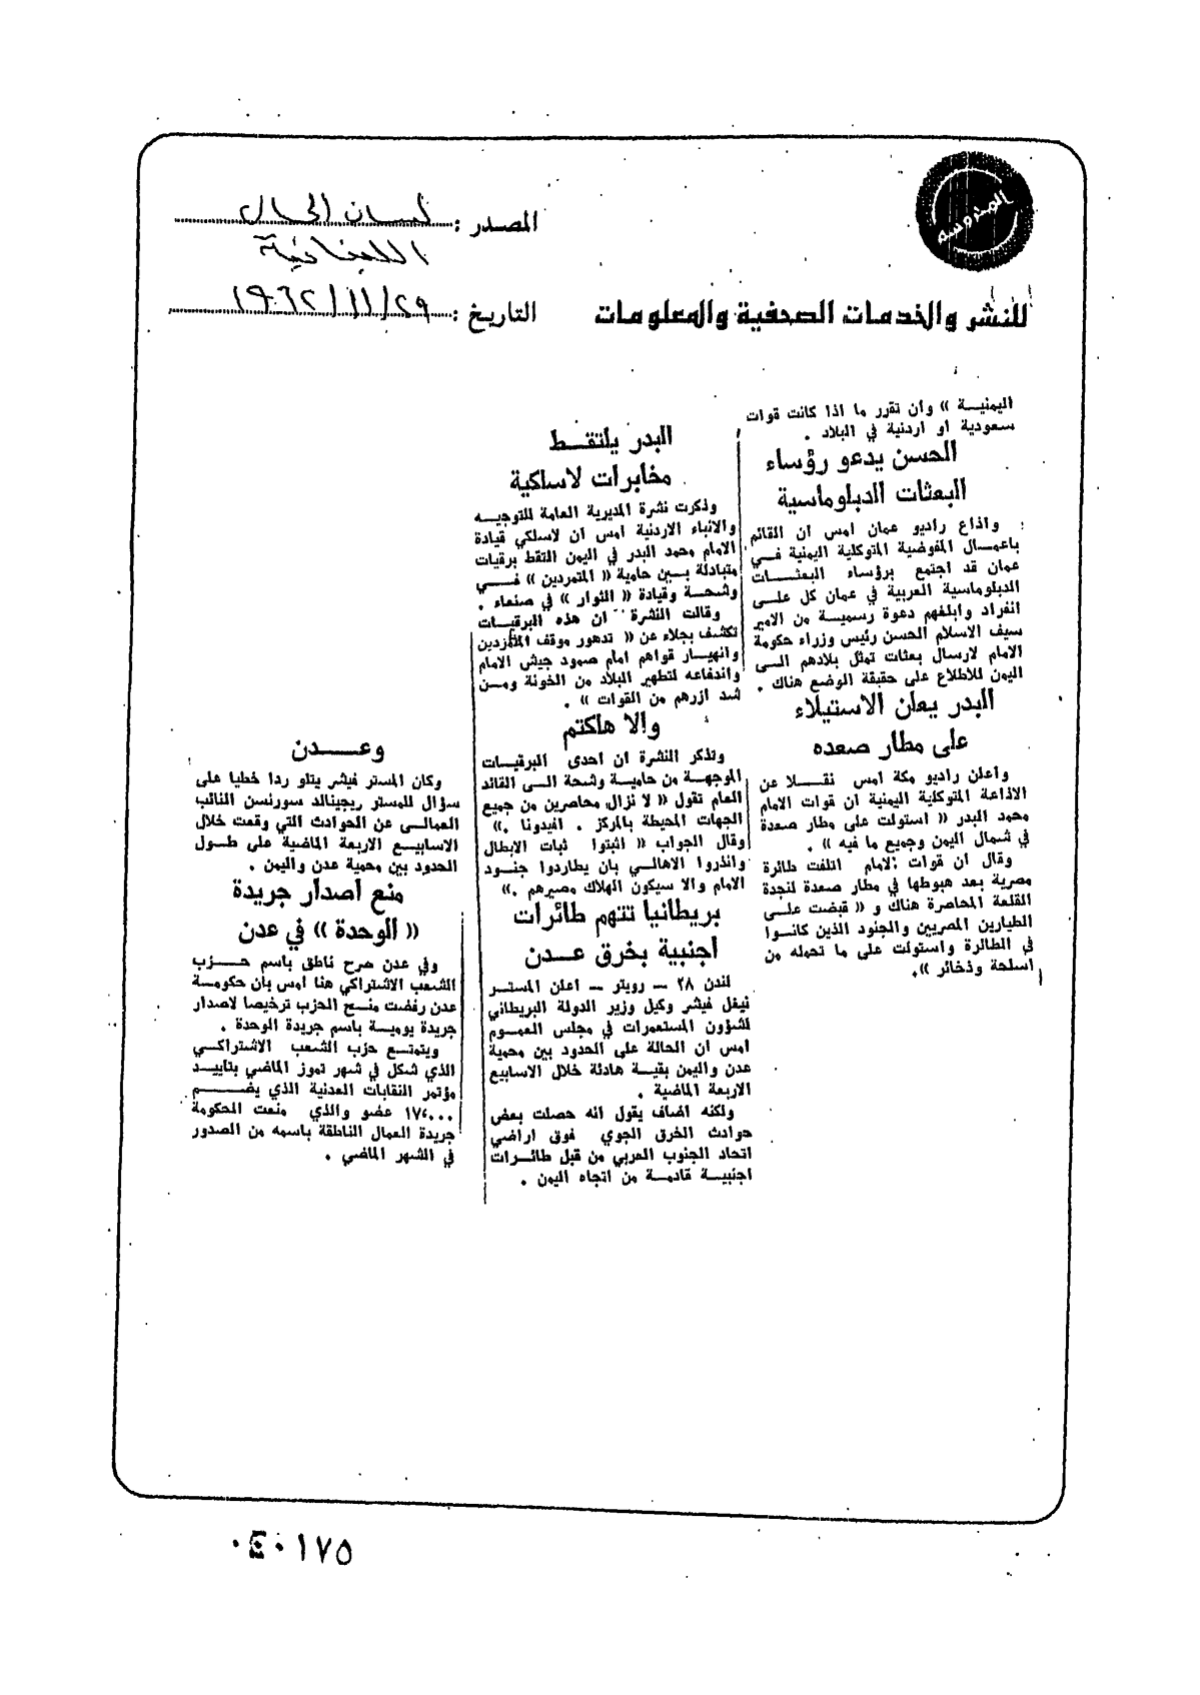 المدروسه
للنشر والخدمات الصحفية والمعلومات
المصدر : لسان الحال
اللبنانية
التاريخ : ١٩٦٢/١١/٢٩
اليمنية » وان تقرر ما اذا كانت قوات
سعودية او اردنية في البلاد .
الحسن يدعو رؤساء
البعثات الدبلوماسية
واذاع راديو عمان امس ان القائم
باعمـــال المفوضية المتوكلية اليمنية فـــي
عمان قد اجتمع برؤساء البعثـــات
الدبلوماسية العربية في عمان كل علـــى
انفراد وابلغهم دعوة رسميـــة من الامير
سيف الاسلام الحسن رئيس وزراء حكومة
الامام لارسال بعثات تمثل بلادهم الـــى
اليمن للاطلاع على حقيقة الوضع هناك .
البدر يعلن الاستيلاء
على مطار صعده
واعلن راديو مكة امس نقـــلا عن
الاذاعة المتوكلية اليمنية ان قوات الامام
محمد البدر « استولت على مطار صعدة
في شمال اليمن وجميع ما فيه » .
وقال ان قوات الامام اتلفت طائرة
مصرية بعد هبوطها في مطار صعدة لنجدة
القلعة المحاصرة هناك و « قبضت علـــى
الطيارين المصريين والجنود الذين كانـــوا
في الطائرة واستولت على ما تحمله من
اسلحة وذخائر ».
البدر يلتقـــط
مخابرات لاسلكية
وذكرت نشرة المديرية العامة للتوجيـــه
والانباء الاردنية امس ان لاسلكي قيادة
الامام محمد البدر في اليمن التقط برقيات
متبادلة بـــين حامية « المتمردين » فـــي
وشحـــة وقيادة « الثوار » في صنعاء .
وقالت النشرة ان هذه البرقيـــات
تكشف بجلاء عن « تدهور موقف المتمردين
وانهيـــار قواهم امام صمود جيش الامام
واندفاعه لتطهير البلاد من الخونة ومـــن
شد ازرهم من القوات » .
والا هلكتم
وتذكر النشرة ان احدى البرقيـــات
الموجهـــة من حاميـــة وشحة الـــى القائد
العام تقول « لا نزال محاصرين من جميع
الجهات المحيطة بالمركز . افيدونا .»
وقال الجواب « اثبتوا ثبات الابطال
وانذروا الاهالـــي بان يطاردوا جنـــود
الامام والا سيكون الهلاك مصيرهم .»
بريطانيا تتهم طائرات
اجنبية بخرق عـــدن
لندن ٢٨ – رويتر – اعلن المستـــر
نيغل فيشر وكيل وزير الدولة البريطاني
لشؤون المستعمرات في مجلس العمـــوم
امس ان الحالة على الحدود بين محمية
عدن واليمن بقيـــة هادئة خلال الاسابيع
الاربعة الماضية .
ولكنه اضاف يقول انه حصلت بعض
حوادث الخرق الجوي فوق اراضي
اتحاد الجنوب العربي من قبل طائـــرات
اجنبيـــة قادمـــة من اتجاه اليمن .
وعـــدن
وكان المستر فيشر يتلو ردا خطيا على
سؤال للمستر ريجينالد سورنسن النائب
العمالـــى عن الحوادث التي وقعت خلال
الاسابيـــع الاربعة الماضية على طـــول
الحدود بين محمية عدن واليمن .
منع اصدار جريدة
« الوحدة » في عدن
وفي عدن صرح ناطق باسم حـــزب
الشعب الاشتراكي هنا امس بان حكومـــة
عدن رفضت منـــح الحزب ترخيصا لاصدار
جريدة يوميـــة باسم جريدة الوحدة .
ويتمتـــع حزب الشعب الاشتراكـــي
الذي شكل في شهر تموز الماضي بتاييـــد
مؤتمر النقابات العدنية الذي يضـــم
١٧٬٠٠٠ عضو والذي منعت الحكومة
جريدة العمال الناطقة باسمه من الصدور
في الشهر الماضي .
٠٤٠١٧٥